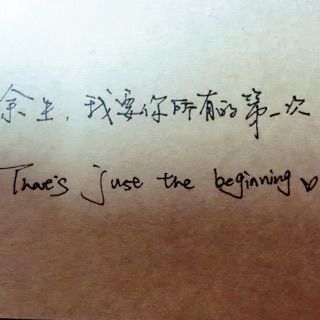 余生,我要你所有的第一次
That's just the beginning♡